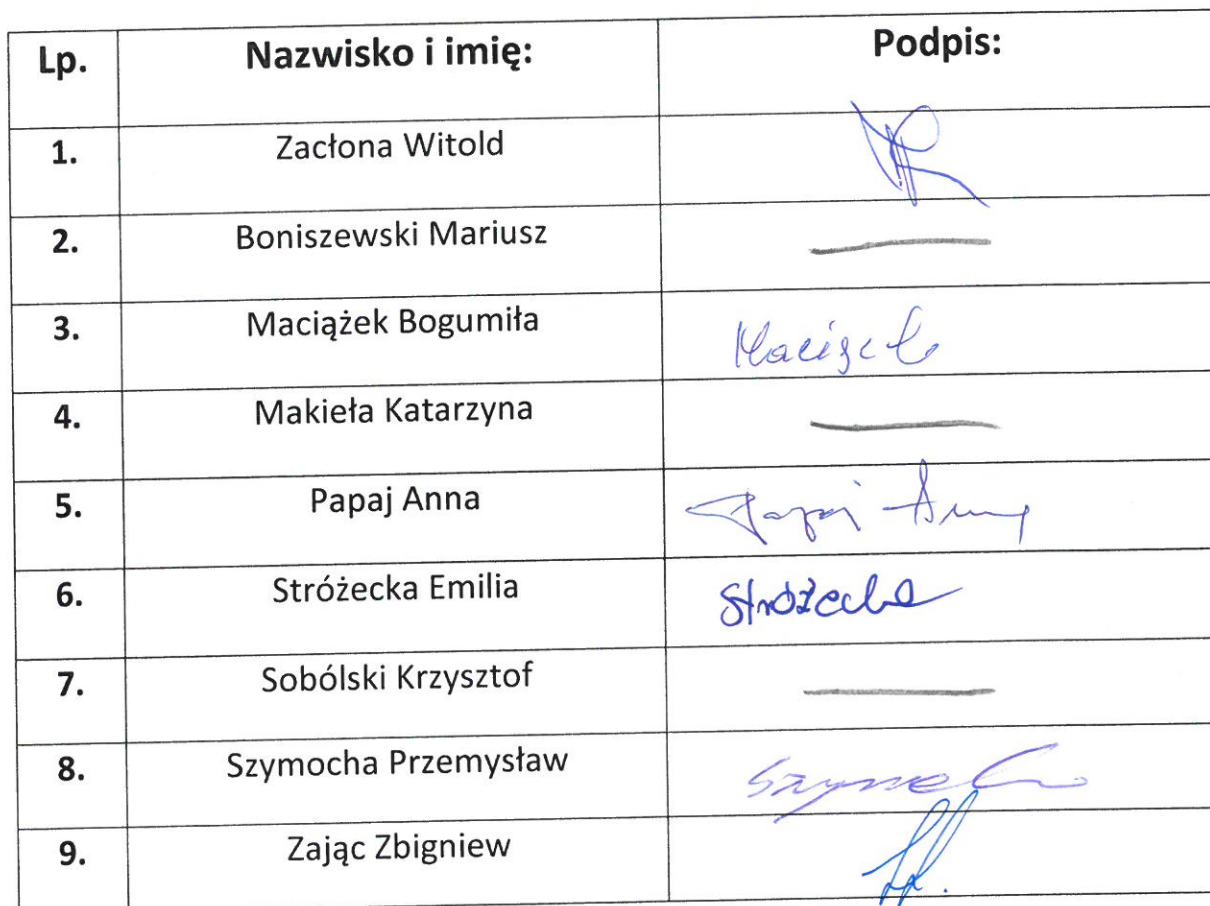 Lp. Nazwisko i imię: Podpis:
1. Zacłona Witold
2. Boniszewski Mariusz
3. Maciążek Bogumiła
4. Makieła Katarzyna
5. Papaj Anna Papaj Anna
6. Stróżecka Emilia Stróżecka
7. Sobólski Krzysztof
8. Szymocha Przemysław
9. Zając Zbigniew